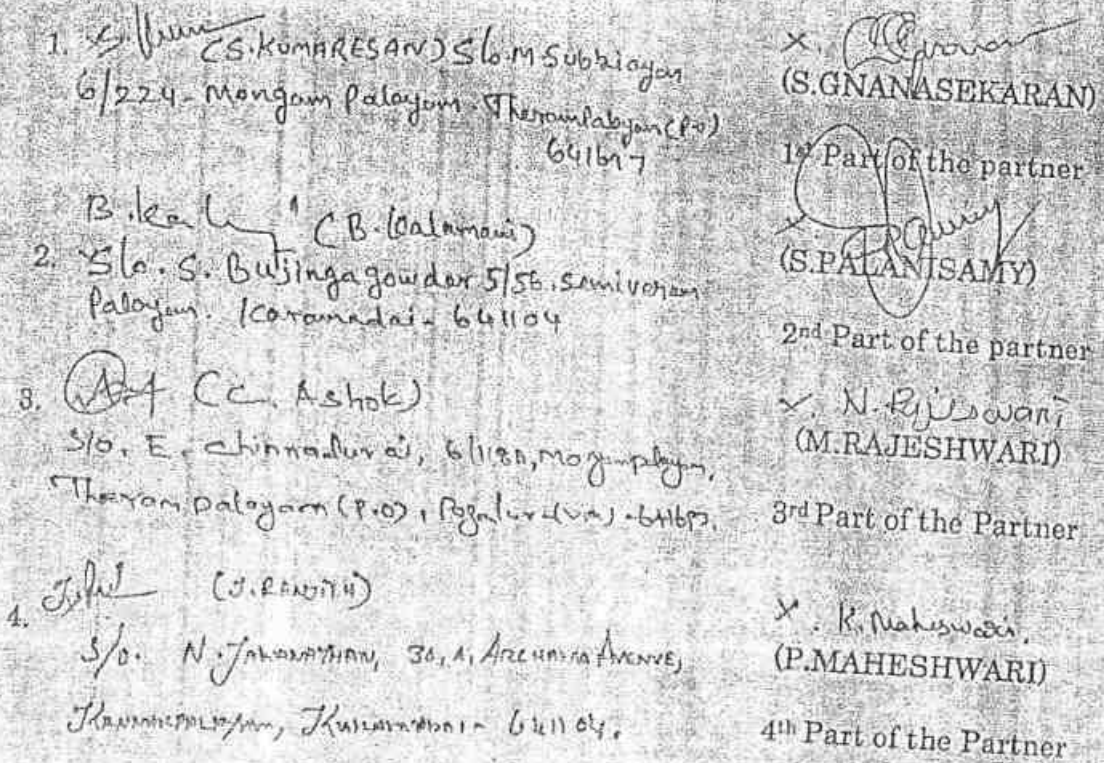 1. (S.KUMARESAN) S/o. M Subbiayan
6/224 - Mongam Palayam. Therampalayam (P.O)
641697
B. (B. Kalamani)
2. S/o. S. Bujingagowder 5/56. Semivoram
Palayam. Karamadai - 641104
3. (C. Ashok)
S/o. E. Chinnadurai, 6/118A,
Therampalayam (P.O), Pogalur (Via) - 641697.
4. (J. RANJITH)
S/o. N. JAGANATHAN, 30, A, ARCHANA AVENUE,
641104.
X.
(S.GNANASEKARAN)
1st Part of the partner
X
(S.PALANISAMY)
2nd Part of the partner
X. N. Rajiswari
(M.RAJESHWARI)
3rd Part of the Partner
X. K. Maheswari.
(P.MAHESHWARI)
4th Part of the Partner